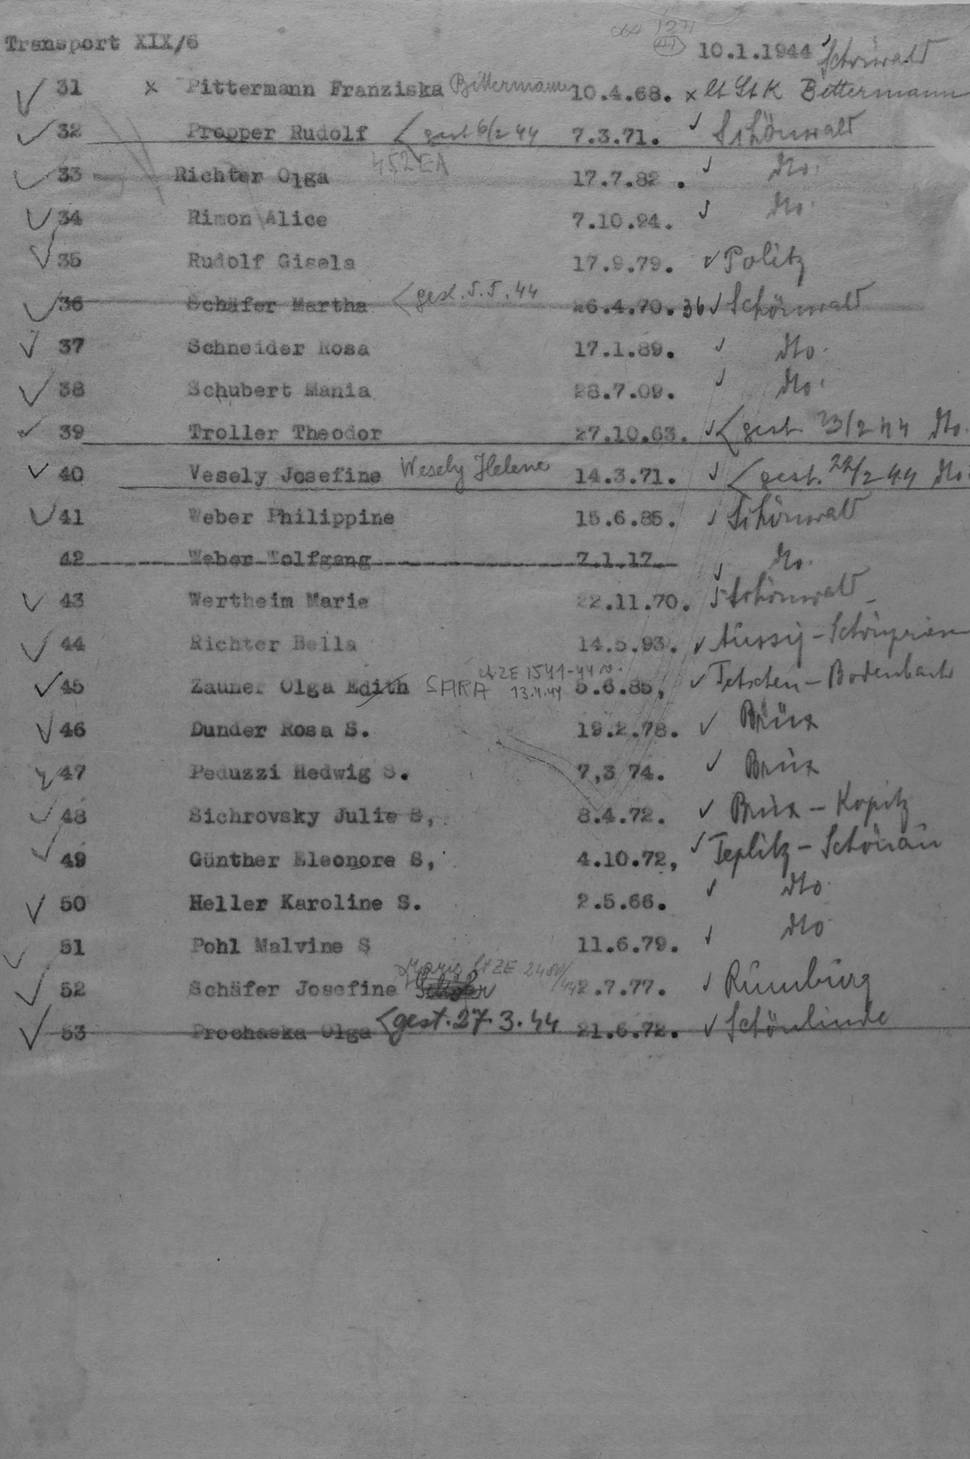 Transport XIX/6 10.1.1944 Schönwald
31 x Pittermann Franziska Bittermann 10.4.68. x lt St K Bittermann
32 Propper Rudolf gest 6/2 44 7.3.71. Schönwald
452EA
33 Richter Olga 17.7.82. dto.
34 Rimon Alice 7.10.94. dto.
35 Rudolf Gisela 17.9.79. Politz
36 Schäfer Martha gest. 5.5.44 26.4.70. 36 Schönwald
37 Schneider Rosa 17.1.89. dto.
38 Schubert Mania 28.7.09. dto.
39 Troller Theodor 27.10.63. gest 23/2 44 dto.
40 Vesely Josefine Wesely Helene 14.3.71. gest. 22/2 44 dto.
41 Weber Philippine 15.6.85. Schönwald
42 Weber Wolfgang 7.1.17 dto.
43 Wertheim Marie 22.11.70. Schönwald
44 Richter Bella 14.5.93. Aussig-Schönpriesen
45 Zauner Olga Edith SARA 13.4.44 5.6.85, Tetschen-Bodenbach
46 Dunder Rosa S. 19.2.78. Brüx
47 Peduzzi Hedwig S. 7,3 74. Brüx
48 Sichrovsky Julie S, 8.4.72. Brüx-Kopitz
49 Günther Eleonore S, 4.10.72, Teplitz-Schönau
50 Heller Karoline S. 2.5.66. dto
51 Pohl Malvine S 11.6.79. dto
52 Schäfer Josefine 2.7.77. Rumburg
53 Prochaska Olga gest. 27.3.44 21.6.72. Schönlinde